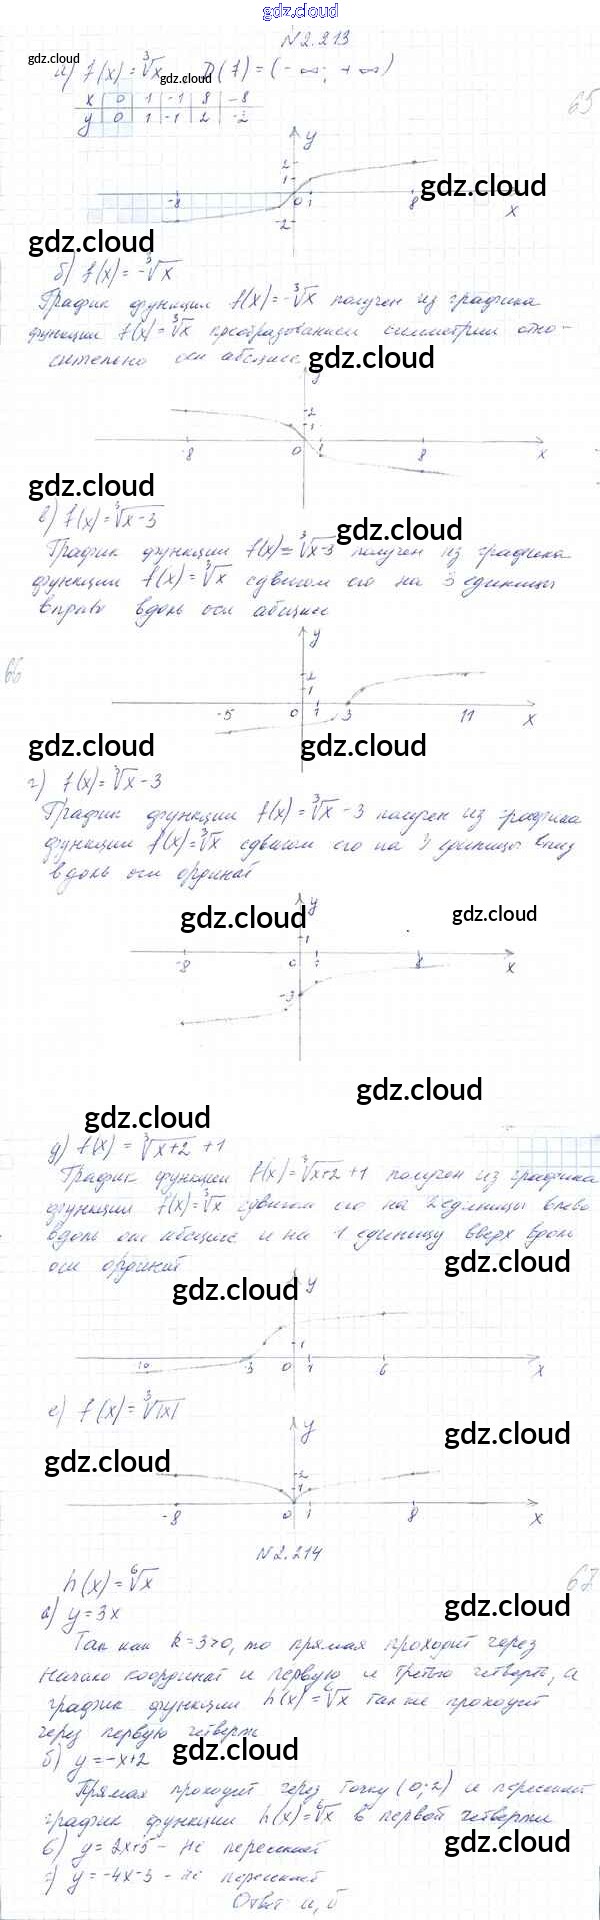 gdz.cloud
№2.213
gdz.cloud
а) f(x)=∛x D(f)=(-∞; +∞)
gdz.cloud
x 0 1 -1 8 -8
65
y 0 1 -1 2 -2
y
2
1
gdz.cloud
-8 0 1 8 x
-2
gdz.cloud
б) f(x)=-∛x
График функции f(x)=-∛x получен из графика
функции f(x)=∛x преобразованием симметрии отно-
сительно оси абсцисс
gdz.cloud
y
2
1
-8 0 1 8 x
gdz.cloud
в) f(x)=∛x-3
gdz.cloud
График функции f(x)=∛x-3 получен из графика
функции f(x)=∛x сдвигом его на 3 единицы
вправо вдоль оси абсцисс
y
66
2
1
-5 0 1 3 11 x
gdz.cloud gdz.cloud
г) f(x)=∛x-3
График функции f(x)=∛x-3 получен из графика
функции f(x)=∛x сдвигом его на 3 единицы вниз
вдоль оси ординат
y
gdz.cloud gdz.cloud
1
-8 0 1 8 x
-3
gdz.cloud
gdz.cloud
д) f(x)=∛x+2+1
График функции f(x)=∛x+2+1 получен из графика
функции f(x)=∛x сдвигом его на 2 единицы влево
вдоль оси абсцисс и на 1 единицу вверх вдоль
оси ординат
gdz.cloud
gdz.cloud
y
1
-10 -3 0 1 6 x
е) f(x)=∛|x|
y
gdz.cloud
gdz.cloud
2
1
-8 0 1 8 x
№2.214
h(x)=⁶√x
67
gdz.cloud
а) y=3x
Так как k=3>0, то прямая проходит через
начало координат и первую и третью четверть, а
график функции h(x)=⁶√x также проходит
через первую четверть
gdz.cloud
б) y=-x+2
Прямая проходит через точку (0;2) и пересекает
график функции h(x)=⁶√x в первой четверти
в) y=2x+5 - не пересекает
gdz.cloud
г) y=-4x-3 - не пересекает
Ответ: а, б